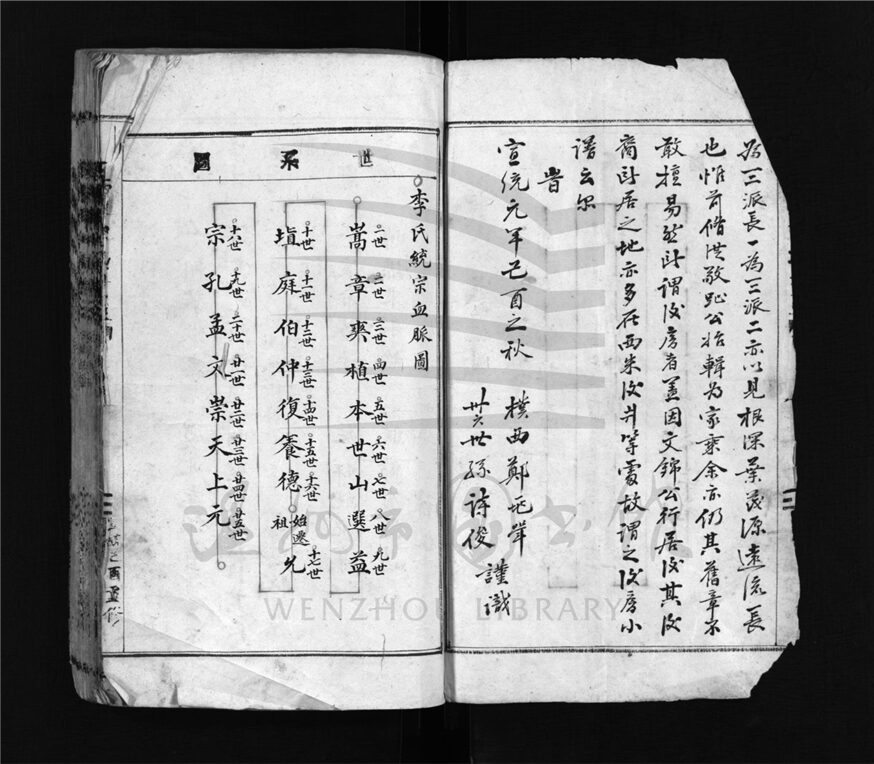 為三派長一為三派二亦以見根深葉茂源遠流長
也惟前脩洪敬趾公始輯為家乘余亦仍其舊章不
敢擅易然所謂後房者蓋因文錦公行居後其後
裔所居之地亦多在西朱後井等處故謂之後房小
譜云尔
旹
宣統元年己酉之秋 樸西鄭
廿六世孫詩俊 謹識
世系圖
李氏統宗血脈圖
一世 二世 三世 四世 五世 六世 七世 八世 九世
嵩 章 爽 植 本 世 山 選 益
十世 十一世 十二世 十三世 十四世 十五世 十六世 始遷祖 十七世
塤 庭 伯 仲 復 養 德 允
十八世 十九世 二十世 廿一世 廿二世 廿三世 廿四世 廿五世
宗 孔 孟 文 崇 天 上 元
己酉重修
溫州市圖書館
WENZHOU LIBRARY